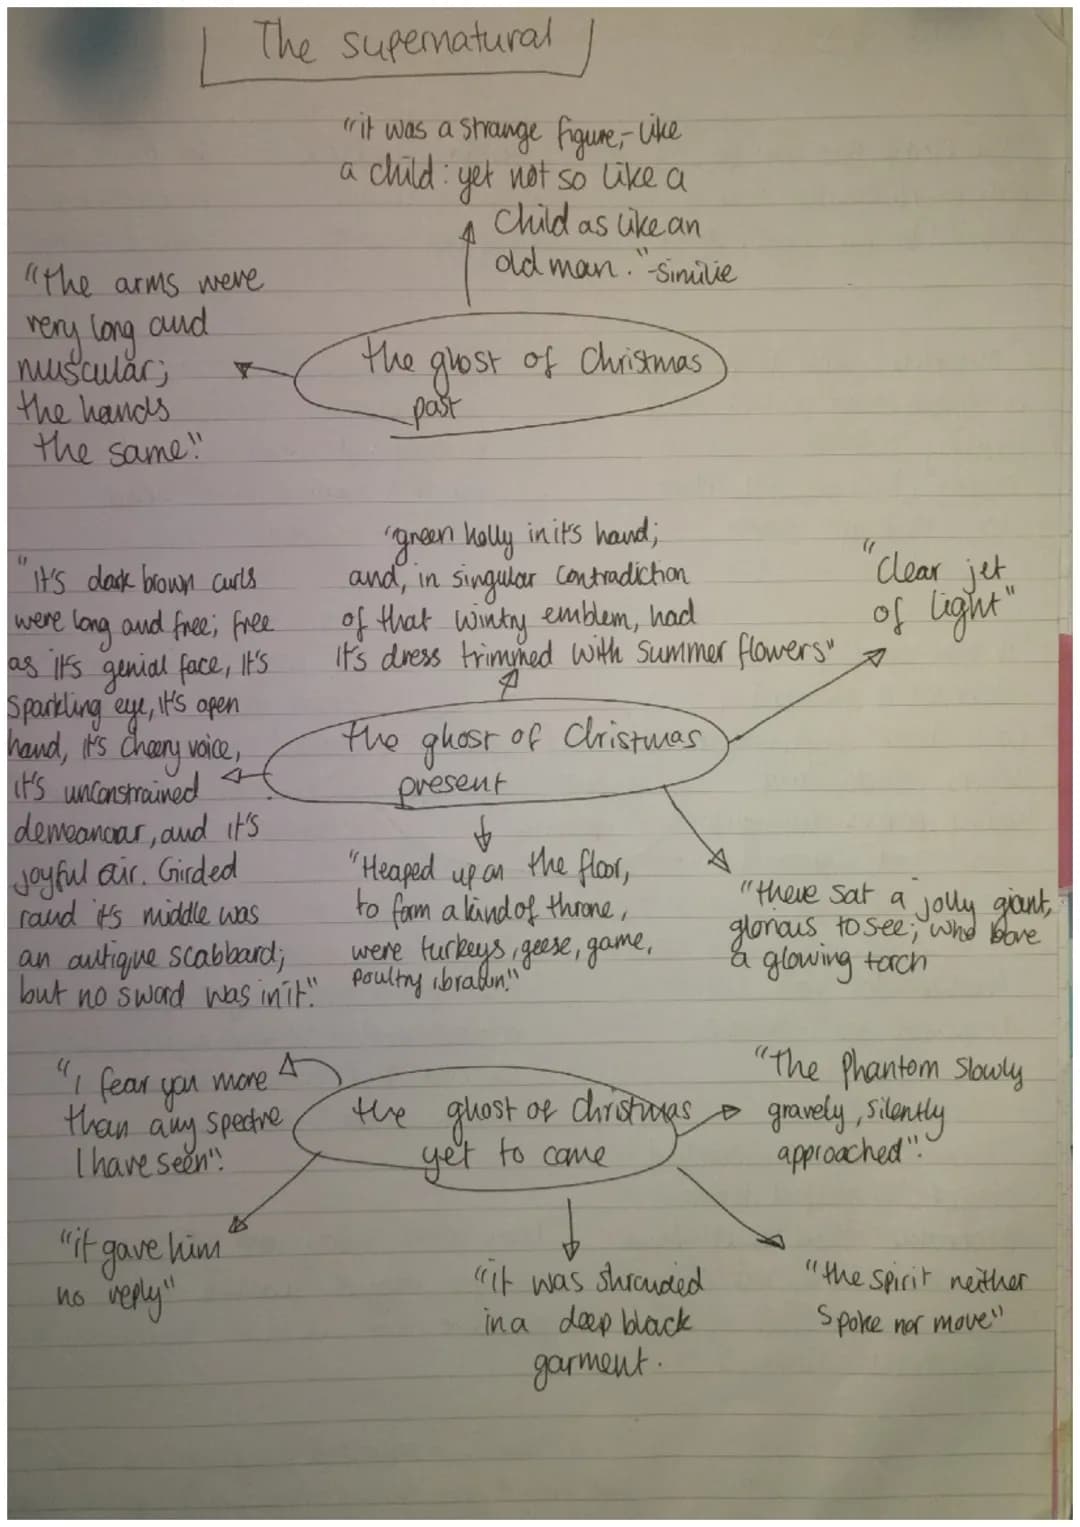 The supernatural
"it was a strange figure,- like
a child: yet not so like a
child as like an
old man." -Similie
"the arms were
very long and
muscular;
the hands
the same"
the ghost of Christmas
past
"green holly in it's hand;
and, in singular contradiction
of that wintry emblem, had
it's dress trimmed with summer flowers"
"clear jet
of light"
"It's dark brown curls
were long and free; free
as it's genial face, it's
sparkling eye, it's open
hand, it's cheery voice,
it's unconstrained
demeanour, and it's
joyful air. Girded
round it's middle was
an antique scabbard;
but no sword was in it."
the ghost of Christmas
present
"Heaped up on the floor,
to form a kind of throne,
were turkeys, geese, game,
poultry, brawn."
"there sat a jolly giant,
glorious to see; who bore
a glowing torch
"I fear you more
than any spectre
I have seen".
the ghost of Christmas
yet to come
"The Phantom slowly
gravely, silently
approached".
"it gave him
no reply"
"it was shrouded
in a deep black
garment.
"the spirit neither
spoke nor move"